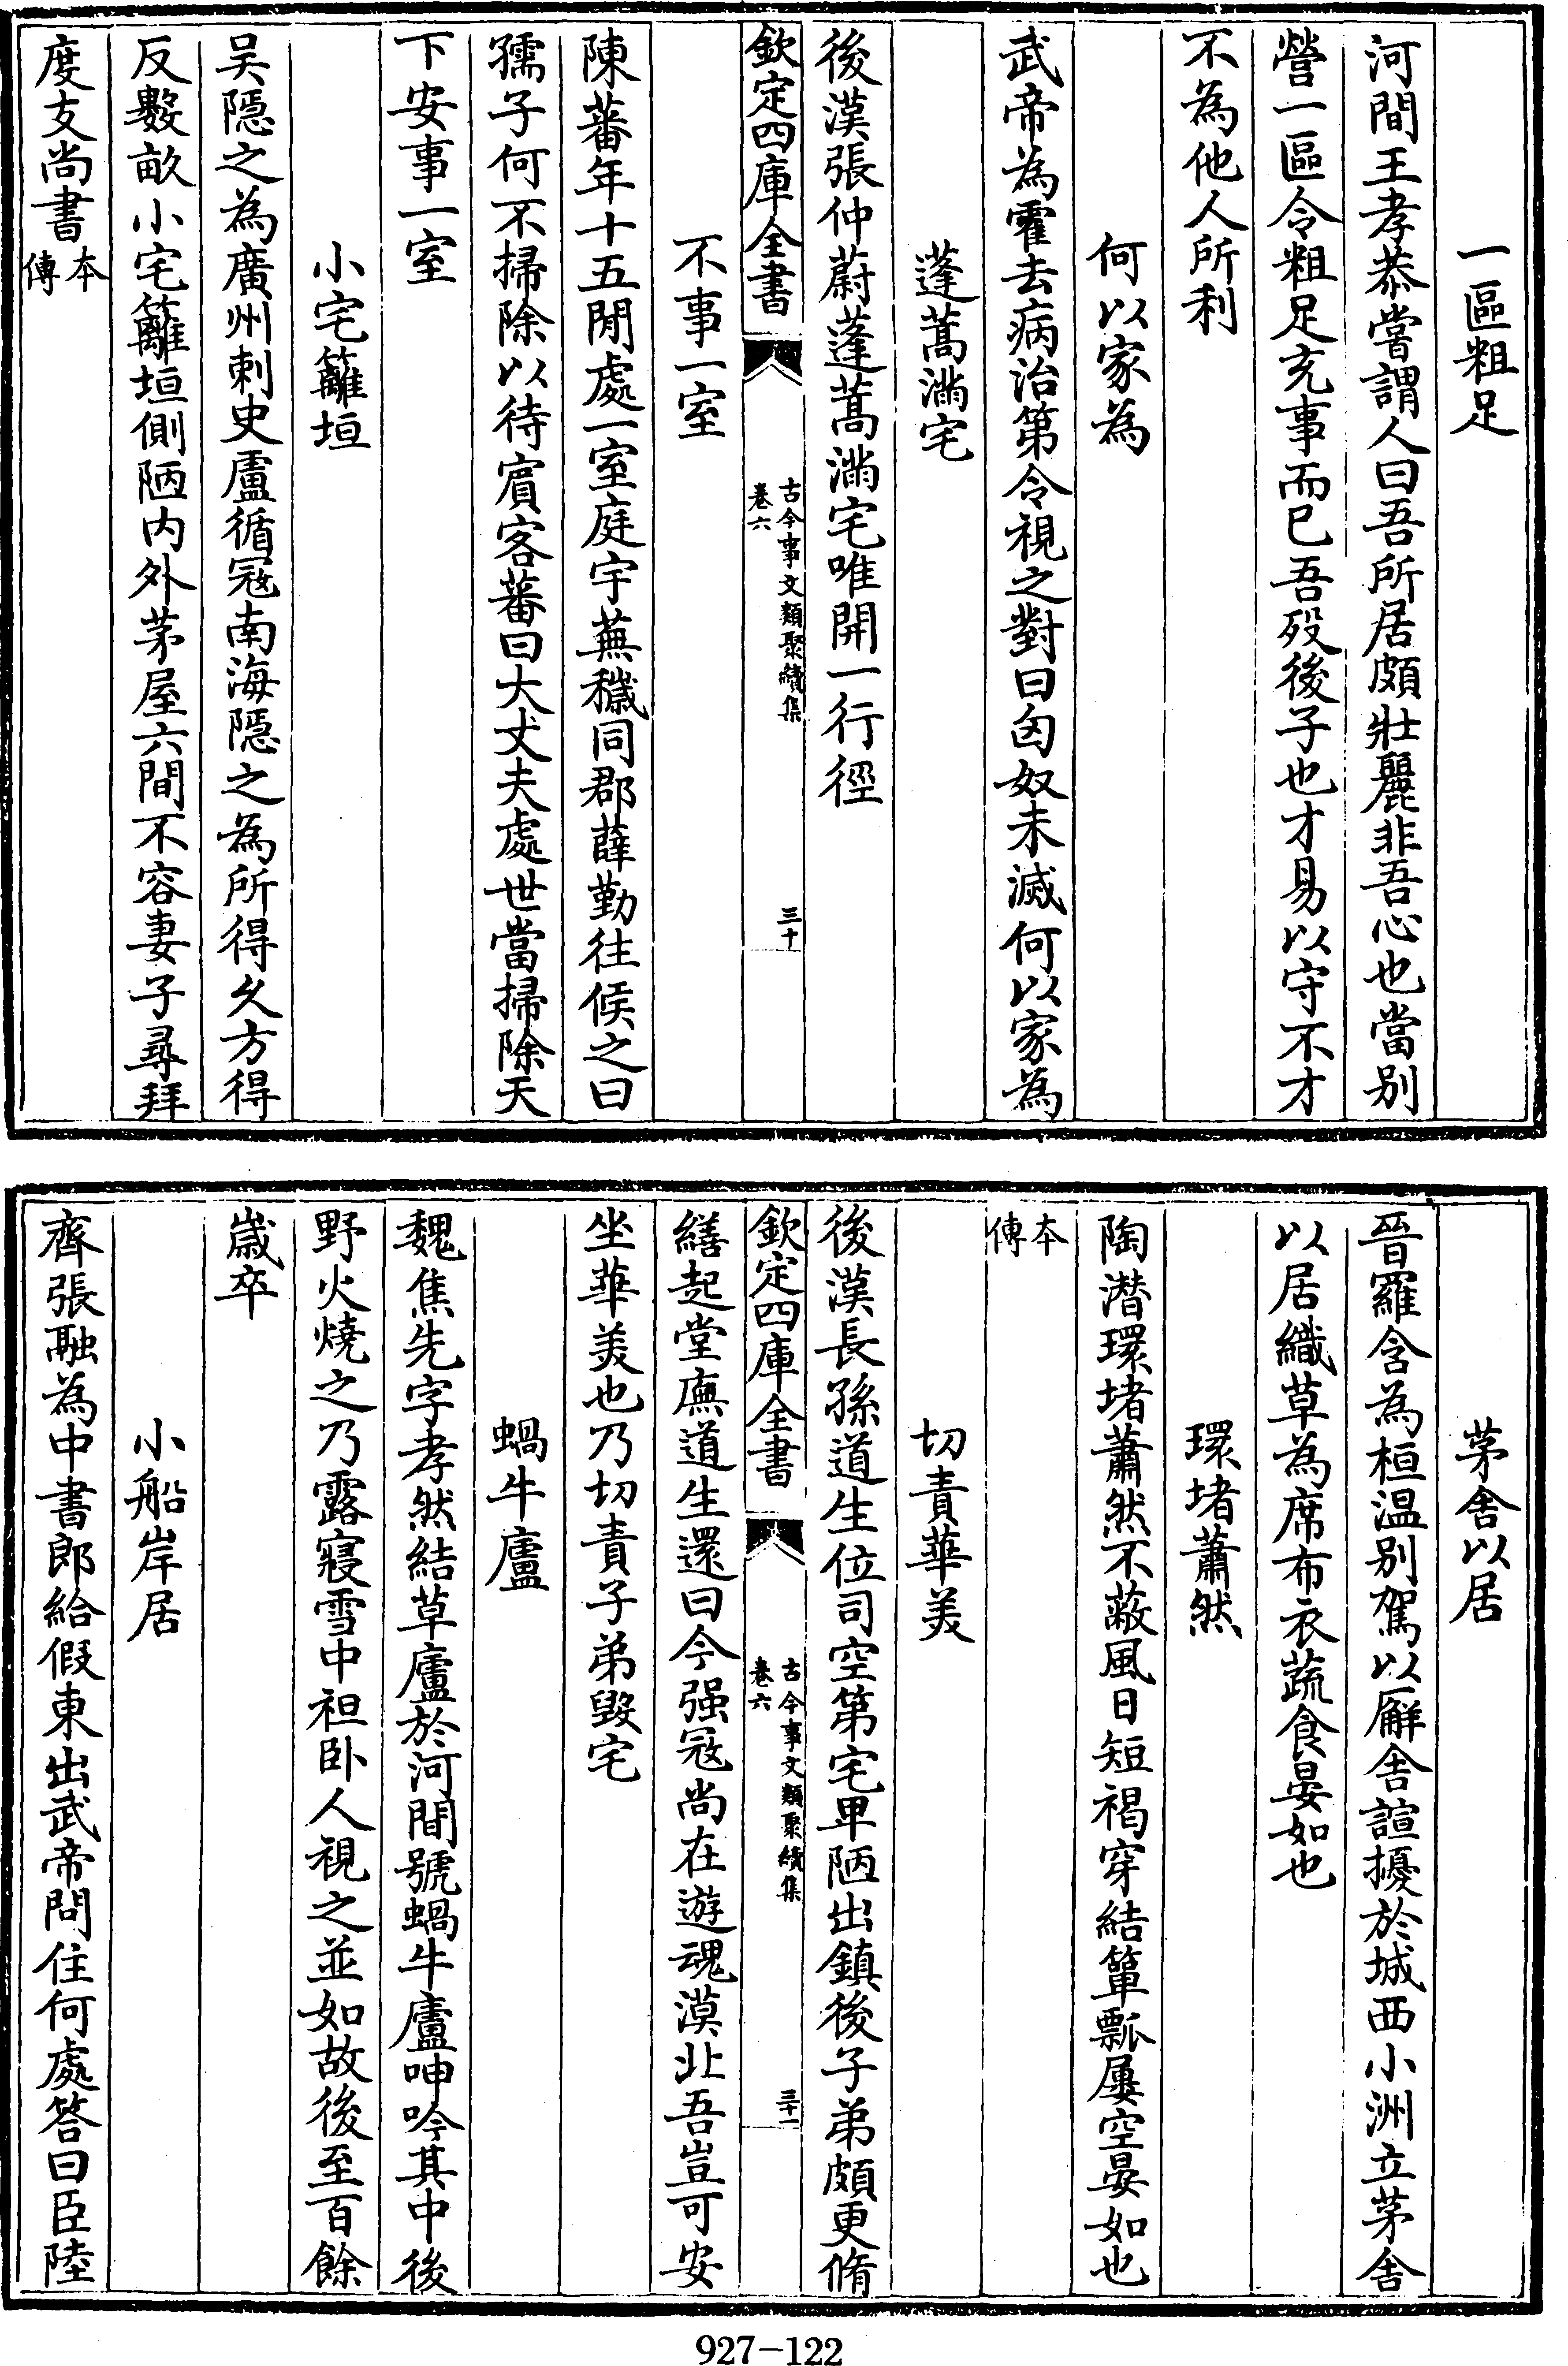 一區粗足
河間王孝恭嘗謂人曰吾所居頗壯麗非吾心也當别
營一區令粗足充事而已吾殁後子也才易以守不才
不為他人所利
何以家為
武帝為霍去病治第令視之對曰匈奴未滅何以家為
蓬蒿滿宅
後漢張仲蔚蓬蒿滿宅唯開一行徑
欽定四庫全書
古今事文類聚續集
卷六
三十
不事一室
陳蕃年十五閒處一室庭宇蕪穢同郡薛勤往候之曰
孺子何不掃除以待賔客蕃曰大丈夫處世當掃除天
下安事一室
小宅籬垣
吴隱之為廣州刺史盧循冦南海隱之為所得久方得
反數畝小宅籬垣側陋内外茅屋六間不容妻子尋拜
度支尚書本傳
茅舍以居
晉羅含為桓温别駕以廨舍諠擾於城西小洲立茅舍
以居織草為席布衣蔬食晏如也
環堵蕭然
陶潜環堵蕭然不蔽風日短褐穿結簞瓢屢空晏如也
本傳
切責華美
後漢長孫道生位司空第宅卑陋出鎮後子弟頗更脩
欽定四庫全書
古今事文類聚續集
卷六
三十一
繕起堂廡道生還曰今强冦尚在遊魂漠北吾豈可安
坐華美也乃切責子弟毁宅
蝸牛廬
魏焦先字孝然結草廬於河間號蝸牛廬呻吟其中後
野火燒之乃露寢雪中袒卧人視之並如故後至百餘
歲卒
小船岸居
齊張融為中書郎給假東出武帝問住何處答曰臣陸
927-122